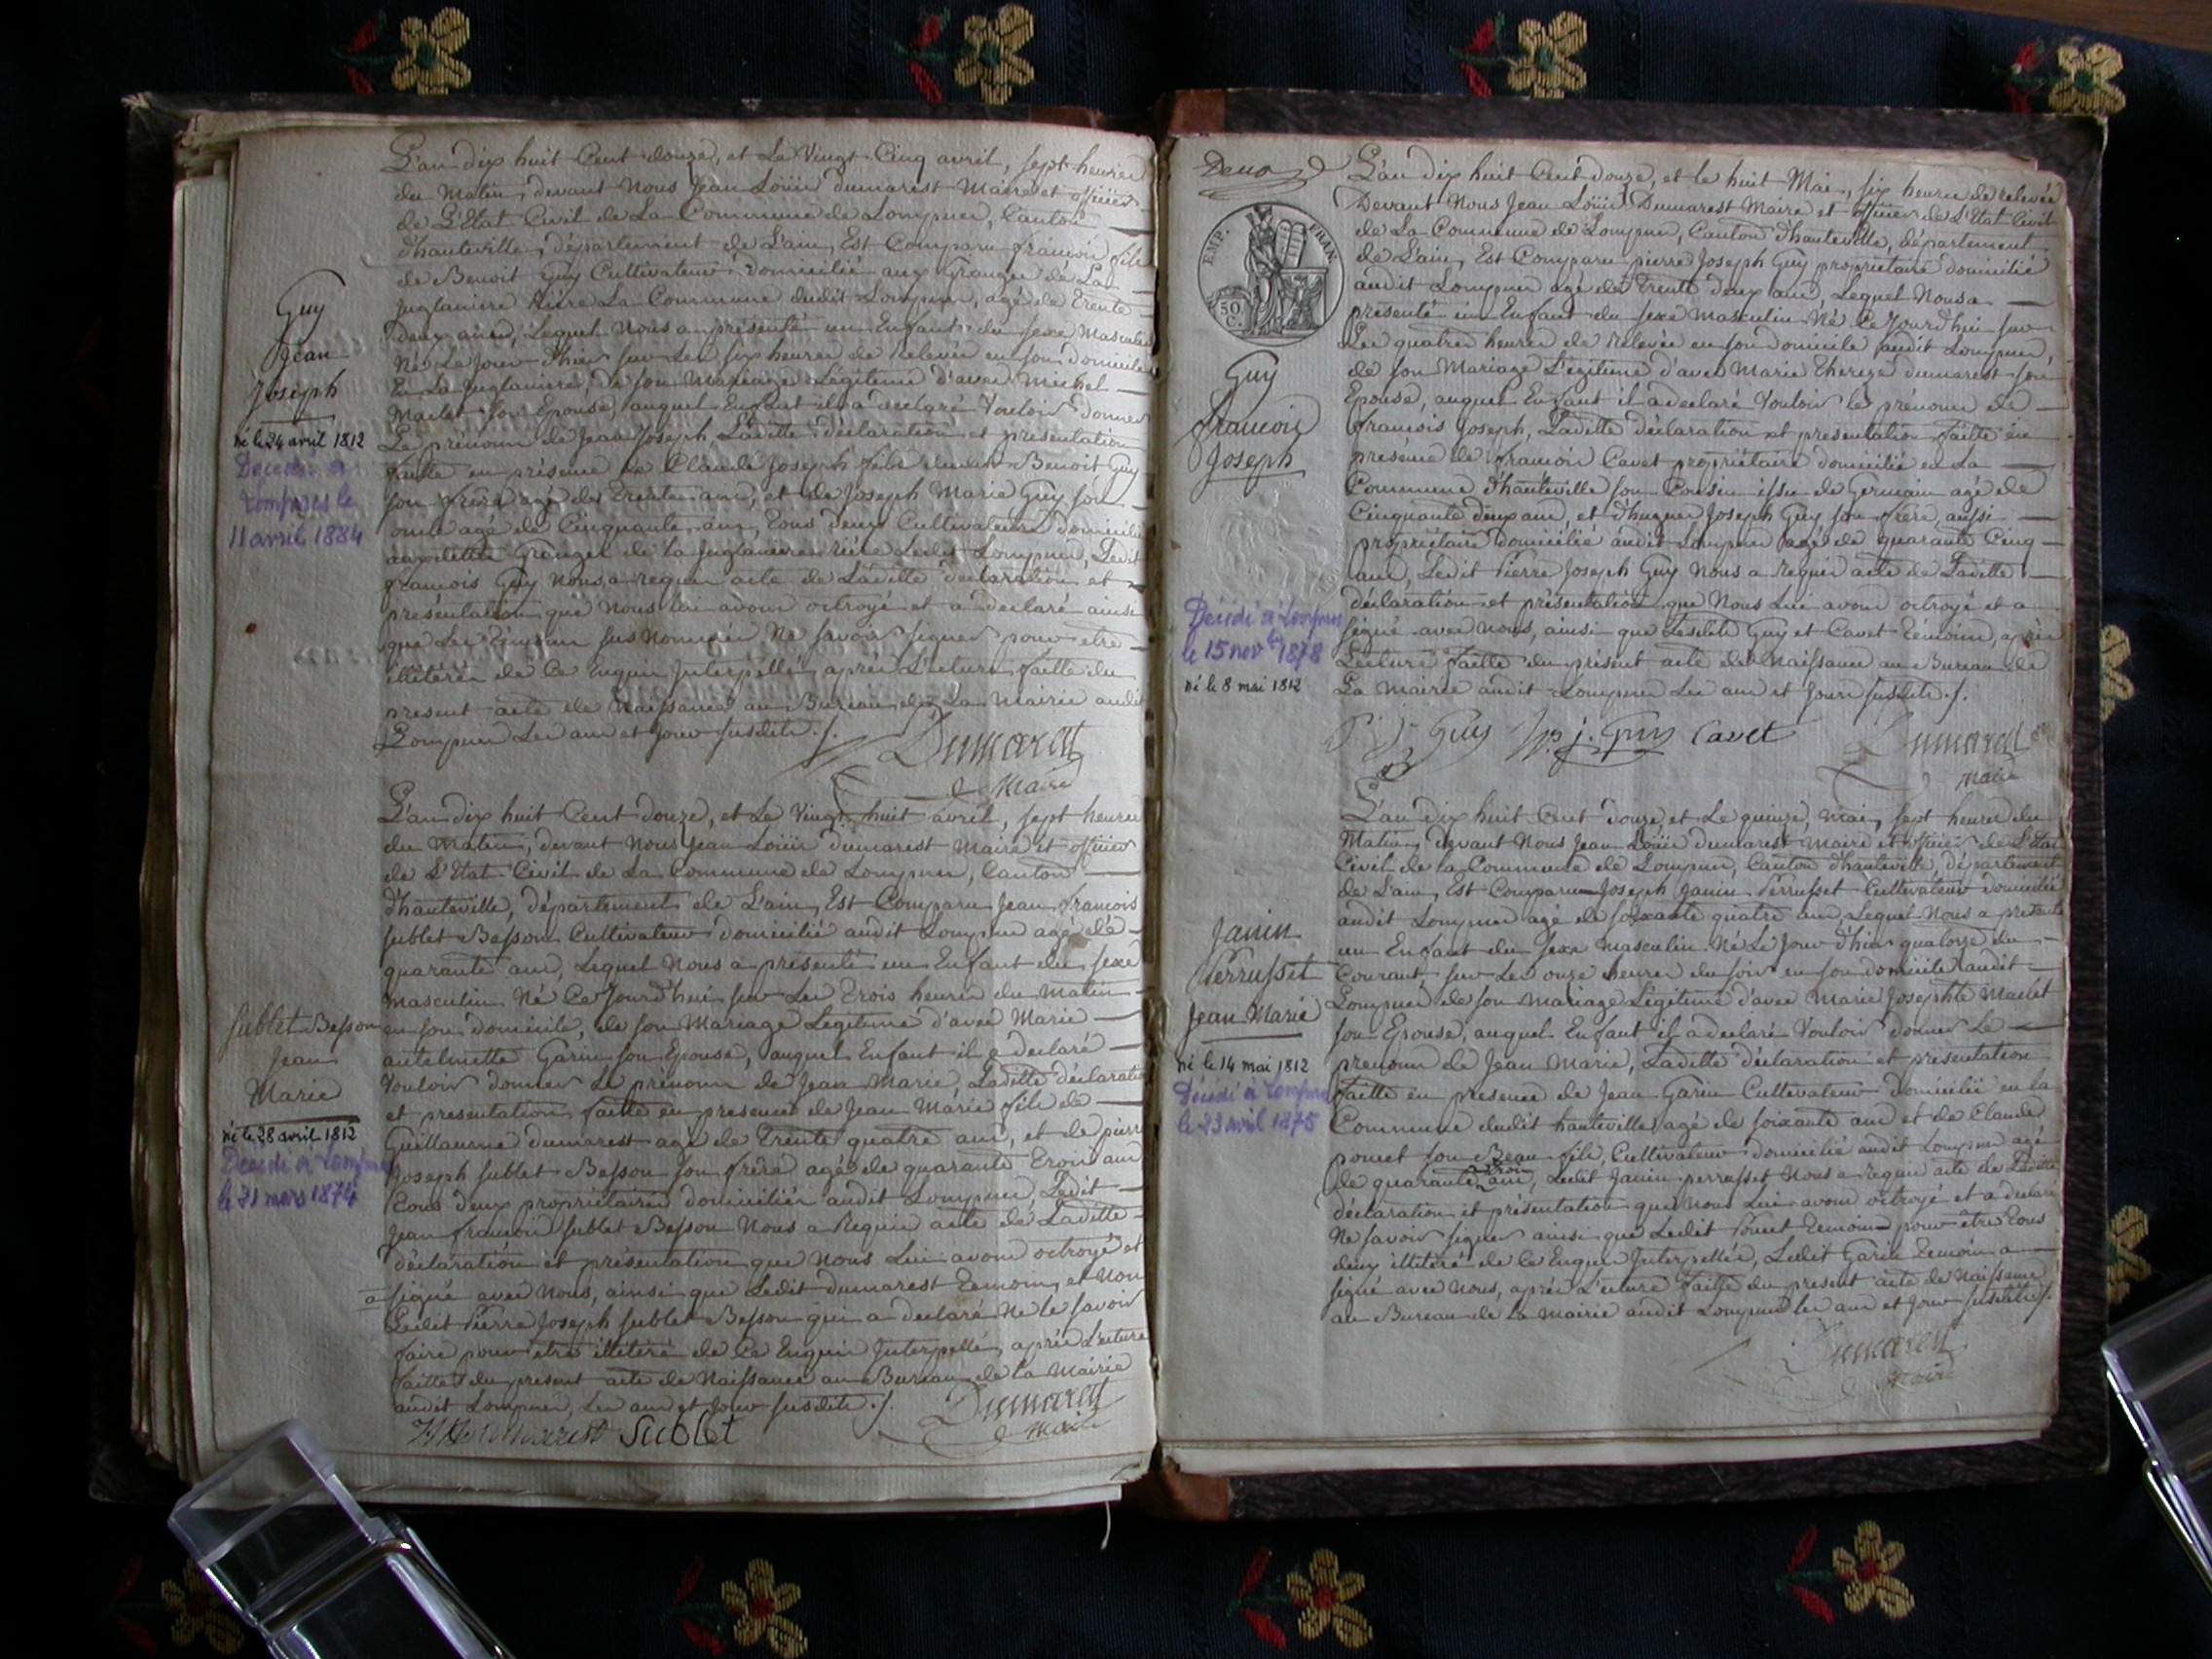 L'an dix huit Cent douze, et Le Vingt Cinq avril, sept heures
du Matin, devant Nous Jean Loüis dumarest Maire et officier
de L'Etat Civil de La Commune de Lompner, Canton
d'hauteville, département de L'ain, Est Comparu francois fils
de Benoit Guy Cultivateur domicilié aux Granges de La
Juglaniere Riere La Commune dudit Lompner, agé de trente
deux ans, Lequel Nous a présenté un Enfant du sexe Masculin
Né Le Jour d'hier sur Les six heures de Relevée en son domicile
En La Juglaniere, de son Mariage Légitime d'avec Michel
Maclet son Epouse, auquel Enfant il a declaré Vouloir donner
Le prénom de Jean Joseph, Laditte déclaration et présentation
faitte en présence de Claude Joseph fils dudit Benoit Guy
son frère agé de trente ans, et de Joseph Marie Guy son
oncle agé de Cinquante ans, tous deux Cultivateurs domiciliés
auxdittes Granges de la Juglaniere riere Ledit Lompner, Ledit
francois Guy Nous a requis acte de Laditte declaration et
présentation que Nous lui avons octroyé et a declaré ainsi
que Les témoins sus Nommés, Ne savoir signer pour etre
illitérés de Ce Enquis Interpellés, après L'ecture faitte du
present acte de Naissance au Bureau de La Mairie audit
Lompner Les an et Jour susdits ./.
Dumarest
Maire
Guy
Jean
Joseph
né le 24 avril 1812
Décédé à
Lompnes le
11 avril 1884
L'an dix huit Cent douze, et Le Vingt huit avril, sept heures
du Matin, devant Nous Jean Loüis dumarest Maire et officier
de L'Etat Civil de La Commune de Lompner, Canton
d'hauteville, département de L'ain, Est Comparu Jean francois
sublet Besson Cultivateur domicilié audit Lompner agé de
quarante ans, Lequel Nous a présenté un Enfant du sexe
masculin Né Ce Jourd'hui sur Les trois heures du Matin
en son domicile, de son Mariage Légitime d'avec Marie
antelmette Garin son Epouse, auquel Enfant il a declaré
Vouloir donner Le prénom de Jean Marie, Laditte déclaration
et présentation faitte en presence de Jean Marie fils de
Guillaume dumarest agé de trente quatre ans, et de pierre
Joseph sublet Besson son frère agé de quarante trois ans
tous deux proprietaires domiciliés audit Lompner, Ledit
Jean francois sublet Besson Nous a Requis acte de Laditte
déclaration et présentation que Nous Lui avons octroyé et
a signé avec Nous, ainsi que Ledit dumarest temoin, et Non
Ledit Pierre Joseph sublet Besson qui a declaré Ne le savoir
faire pour etre illitéré de Ce Enquis Interpellé, après L'ecture
faitte du present acte de Naissance au Bureau de la Mairie
audit Lompner, Les an et Jour susdits ./.
Dumarest Sublet Dumarest
Maire
Sublet Besson
Jean
Marie
né le 28 avril 1812
Décédé à Lompnes
le 31 mars 1874
Deux
EMP. FRAN.
50
C.
L'an dix huit Cent douze, et le huit Mai, six heures de relevée
Devant Nous Jean Loüis Dumarest Maire et officier de L'Etat Civil
de La Commune de Lompner, Canton d'hauteville, département
de L'ain, Est Comparu pierre Joseph Guy proprietaire domicilié
audit Lompner agé de trente deux ans, Lequel Nous a
présenté un Enfant du sexe Masculin Né Ce Jourd'hui sur
Les quatre heures de Relevée en son domicile audit Lompner,
de son Mariage Légitime d'avec Marie Thereze dumarest son
Epouse, auquel Enfant il a declaré Vouloir le prénom de
francois Joseph, Laditte déclaration et présentation faitte en
présence de francois Cavet propriétaire domicilié en La
Commune d'hauteville son Cousin issu de Germain agé de
Cinquante deux ans, et d'hugues Joseph Guy son frère, aussi
propriétaire domicilié audit Lompner agé de quarante Cinq
ans, Ledit Pierre Joseph Guy Nous a Requis acte de Laditte
déclaration et présentation que Nous Lui avons octroyé et a
signé avec nous, ainsi que Lesdits Guy et Cavet témoins, après
Lecture faitte du présent acte de Naissance au Bureau de
La Mairie audit Lompner Les an et Jour susdits ./.
Guy j. Guy Cavet Dumarest
Maire
Guy
francois
Joseph
Décédé à Lompnes
le 15 novbre 1878
né le 8 mai 1812
L'an dix huit Cent douze, et Le quinze, Mai, sept heures du
Matin, devant Nous Jean Loüis dumarest Maire et officier de L'Etat
Civil de la Commune de Lompner, Canton d'hauteville, département
de L'ain, Est Comparu Joseph Janin Perrusset Cultivateur domicilié
audit Lompner agé de soixante quatre ans, Lequel Nous a présenté
un Enfant du sexe masculin Né Le Jour d'hier quatorze du
Courant, sur Les onze heures du soir en son domicile audit
Lompner de son Mariage Légitime d'avec Marie Josephte Maclet
son Epouse, auquel Enfant il a declaré Vouloir donner Le
prenom de Jean Marie, Laditte déclaration et présentation
faitte en presence de Jean Garin Cultivateur domicilié en la
Commune dudit hauteville agé de soixante ans et de Claude
poncet son Beau fils, Cultivateur domicilié audit Lompner agé
de quarante trois ans, Ledit Janin perrusset Nous a requis acte de Laditte
déclaration et présentation que Nous Lui avons octroyé et a declaré
Ne savoir signer ainsi que Ledit Poncet temoin pour être tous
deux illitéré de Ce Enquis Interpellés, Ledit Garin temoin a
signé avec Nous, après L'ecture faitte du present acte de Naissance
au Bureau de la Mairie audit Lompner les an et Jour susdits ./.
Dumarest
Maire
Janin
Perrusset
Jean Marie
né le 14 mai 1812
Décédé à Lompnes
le 23 avril 1875